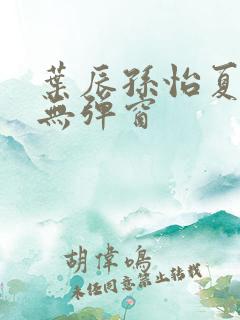 葉辰孫怡夏
無彈窗
胡偉鳴
未經同意禁止轉載